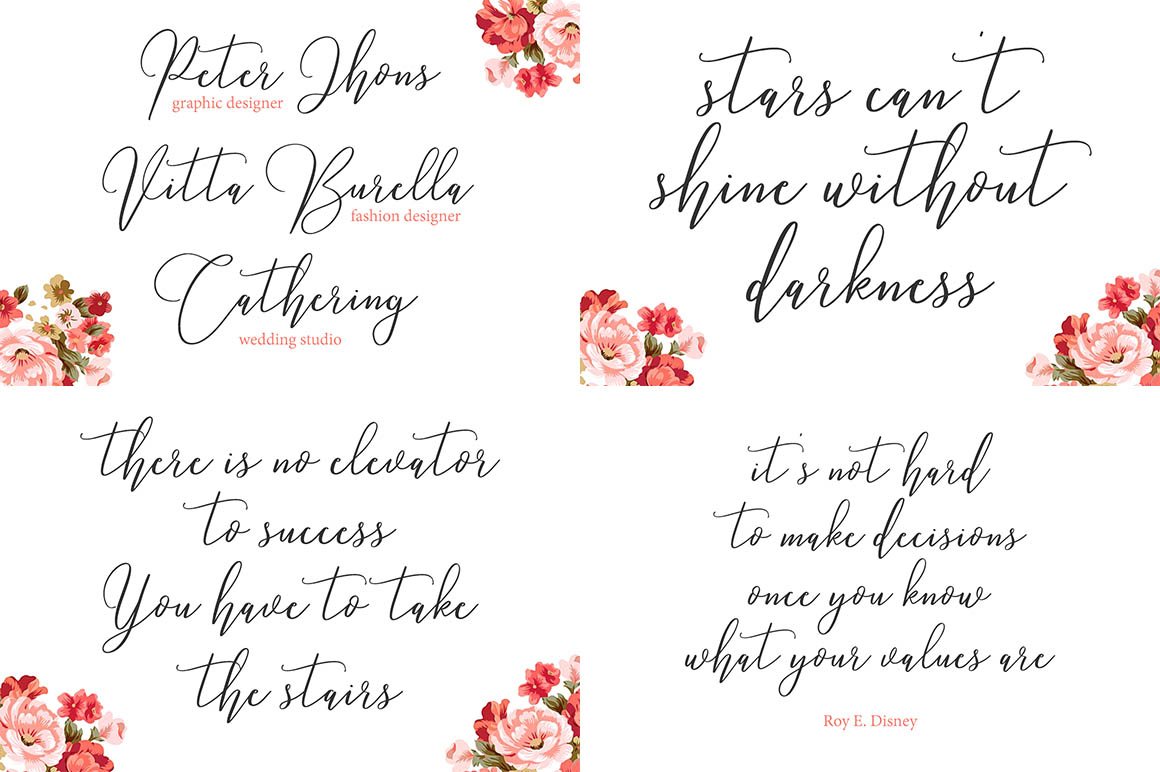 Peter Jhons
graphic designer
Vitta Burella
fashion designer
Cathering
wedding studio
stars can't
shine without
darkness
there is no elevator
to success
You have to take
the stairs
it's not hard
to make decisions
once you know
what your values are
Roy E. Disney